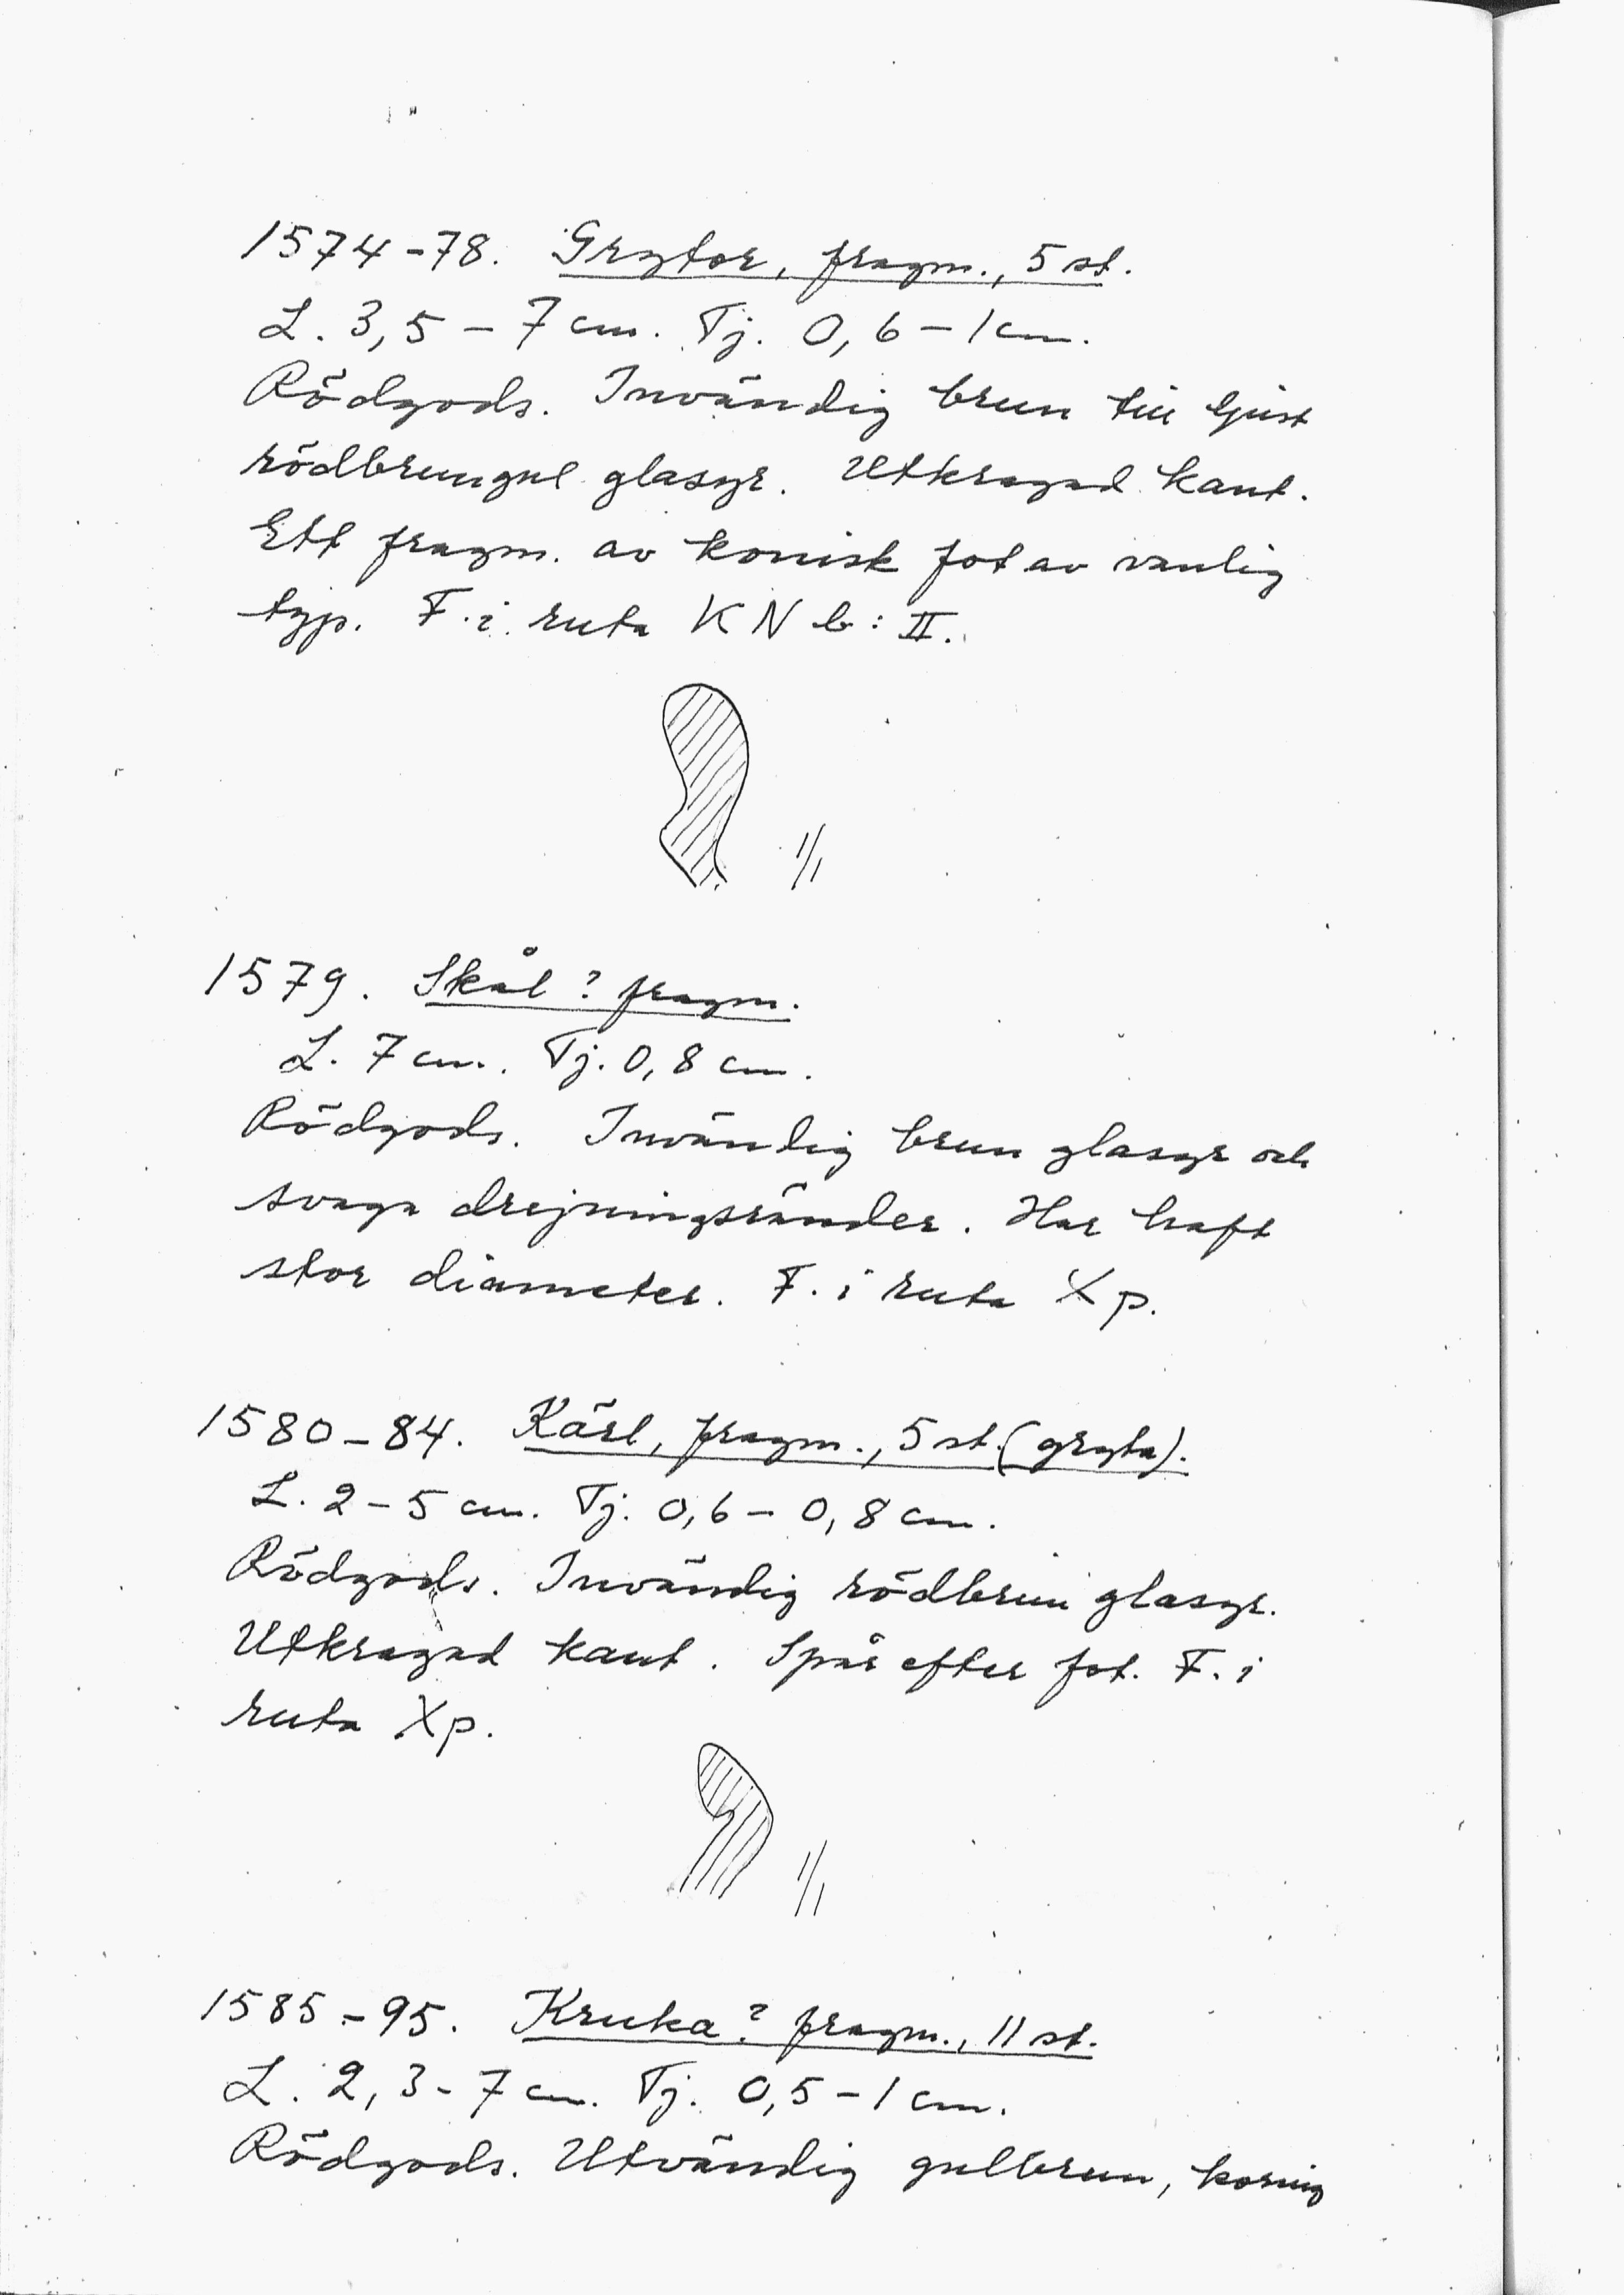 1574-78. Grytor, fragm., 5 st.
L. 3,5 - 7 cm. Tj. 0,6 - 1 cm.
Rödgods. Invändig brun till ljust
rödbrungul glasyr. Utkragad kant.
Ett fragm. av konisk fot av vanlig
typ. F. i ruta KN b: II.
1/1
1579. Skål? fragm.
L. 7 cm. Tj. 0,8 cm.
Rödgods. Invändig brun glasyr och
svaga drejningsränder. Har haft
stor diameter. F. i ruta Xp.
1580-84. Kärl, fragm., 5 st. (gryta).
L. 2-5 cm. Tj. 0,6 - 0,8 cm.
Rödgods. Invändig rödbrun glasyr.
Utkragad kant. Spår efter fot. F. i
ruta Xp.
1/1
1585-95. Kruka? fragm., 11 st.
L. 2,3-7 cm. Tj. 0,5-1 cm.
Rödgods. Utvändig gulbrun, kornig